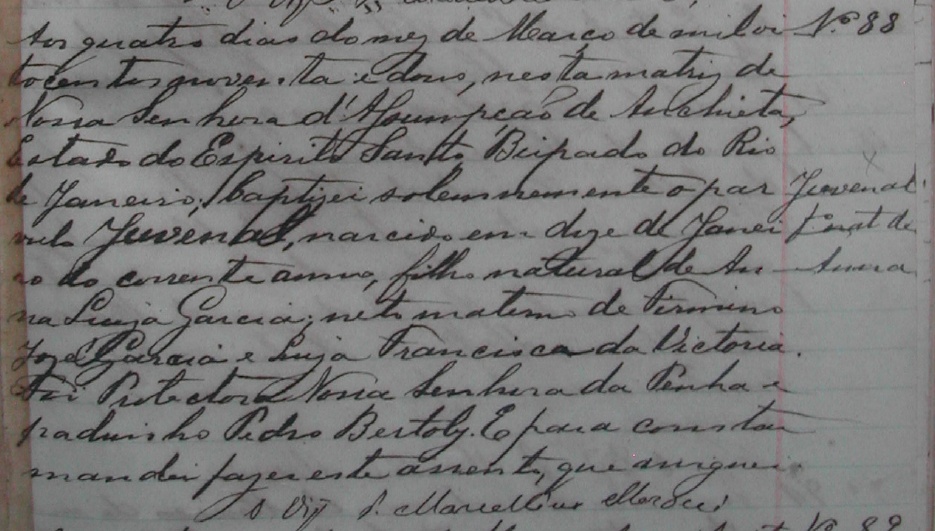 Aos quatro dias do mez de Março de mil oi- Nº 88
tocentos noventa e dous, nesta matriz de
Nossa Senhora d'Assumpção de Anchieta,
Estado do Espirito Santo, Bispado do Rio
de Janeiro, baptizei solemnemente o par- Juvenal
vulo Juvenal, nascido em doze de Janei- f. nat de
ro do corrente anno, filho natural de An- Anna
na Luiza Garcia; neto materno de Firmino
José Garcia e Luiza Francisca da Victoria.
Foi Protectora Nossa Senhora da Penha e
padrinho Pedro Bertoly. E para constar
mandei fazer este assento, que assignei.
O Vigº P. Marcellino
Nº 89